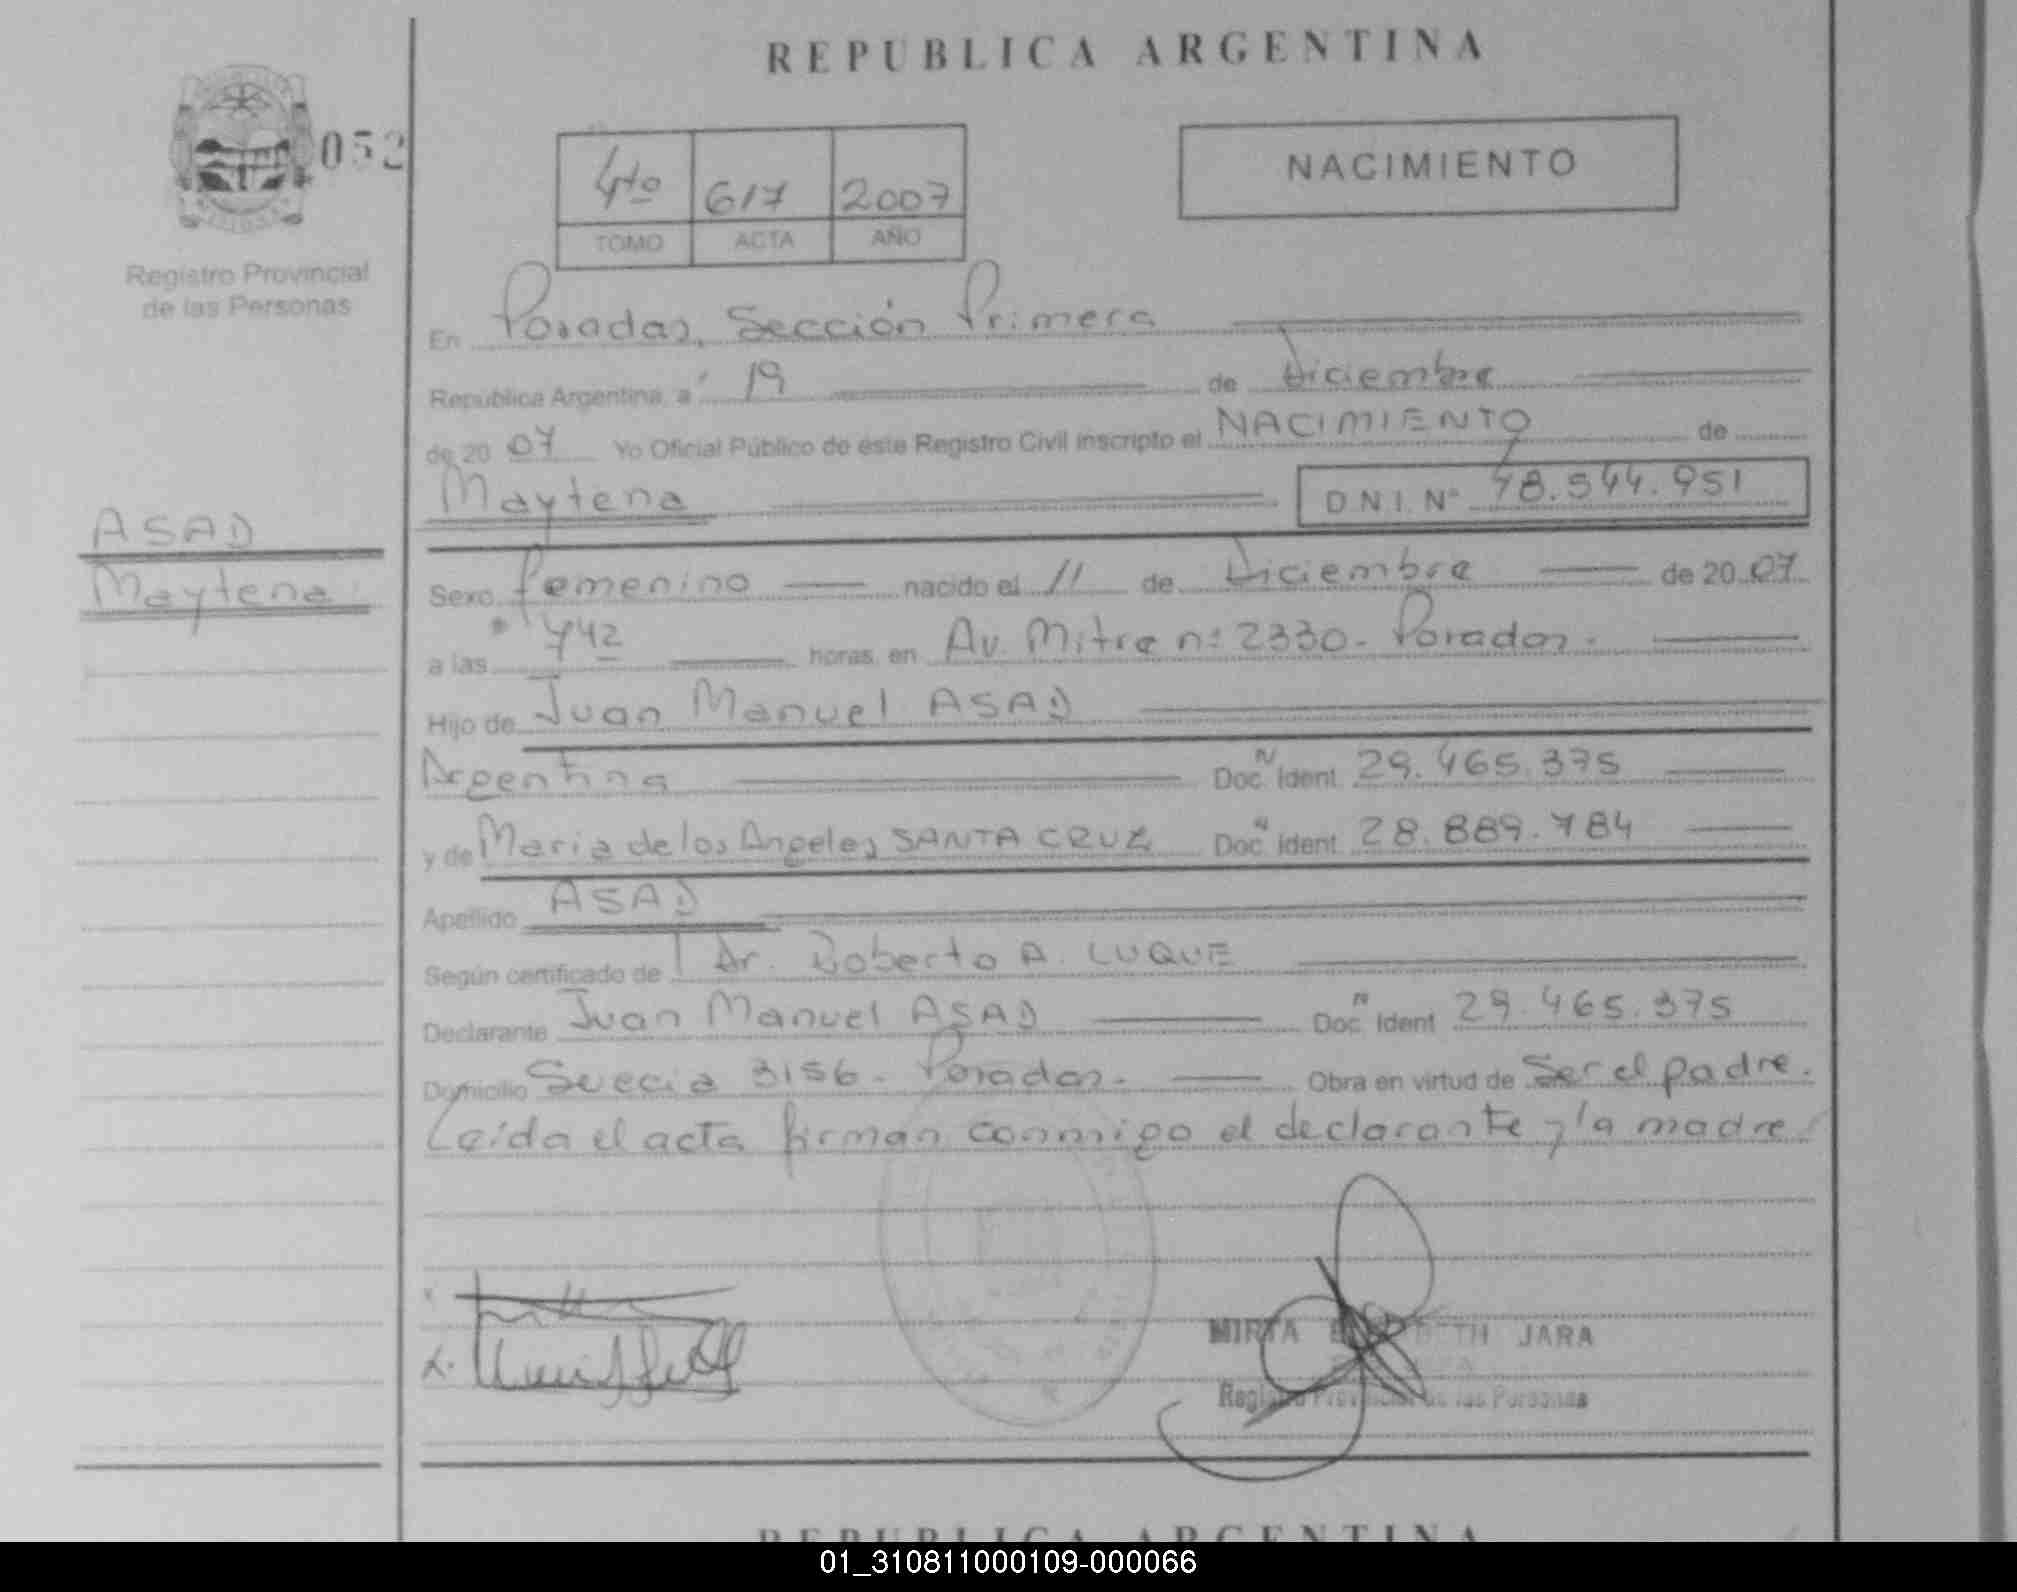 REPUBLICA ARGENTINA
052
4to 617 2007
TOMO ACTA AÑO
NACIMIENTO
Registro Provincial
de las Personas
En Posadas, Sección Primera
República Argentina, a 19 de Diciembre
de 2007 Yo Oficial Público de éste Registro Civil inscripto el NACIMIENTO de
Maytena D.N.I. Nº 48.544.951
ASAD
Maytena
Sexo femenino nacido el 11 de Diciembre de 2007
a las 742 horas, en Av. Mitre nº 2330 - Posadas.
Hijo de Juan Manuel ASAD
Argentina Doc. Ident. 29.465.375
y de Maria de los Angeles SANTA CRUZ Doc. Ident. 28.889.784
Apellido ASAD
Según certificado de Dr. Roberto A. LUQUE
Declarante Juan Manuel ASAD Doc. Ident. 29.465.375
Domicilio Suecia 3156 - Posadas. Obra en virtud de Ser el padre.
Leída el acta firman conmigo el declarante y la madre.
MIRTA JARA
Registro Provincial de las Personas
REPUBLICA ARGENTINA
01_310811000109-000066